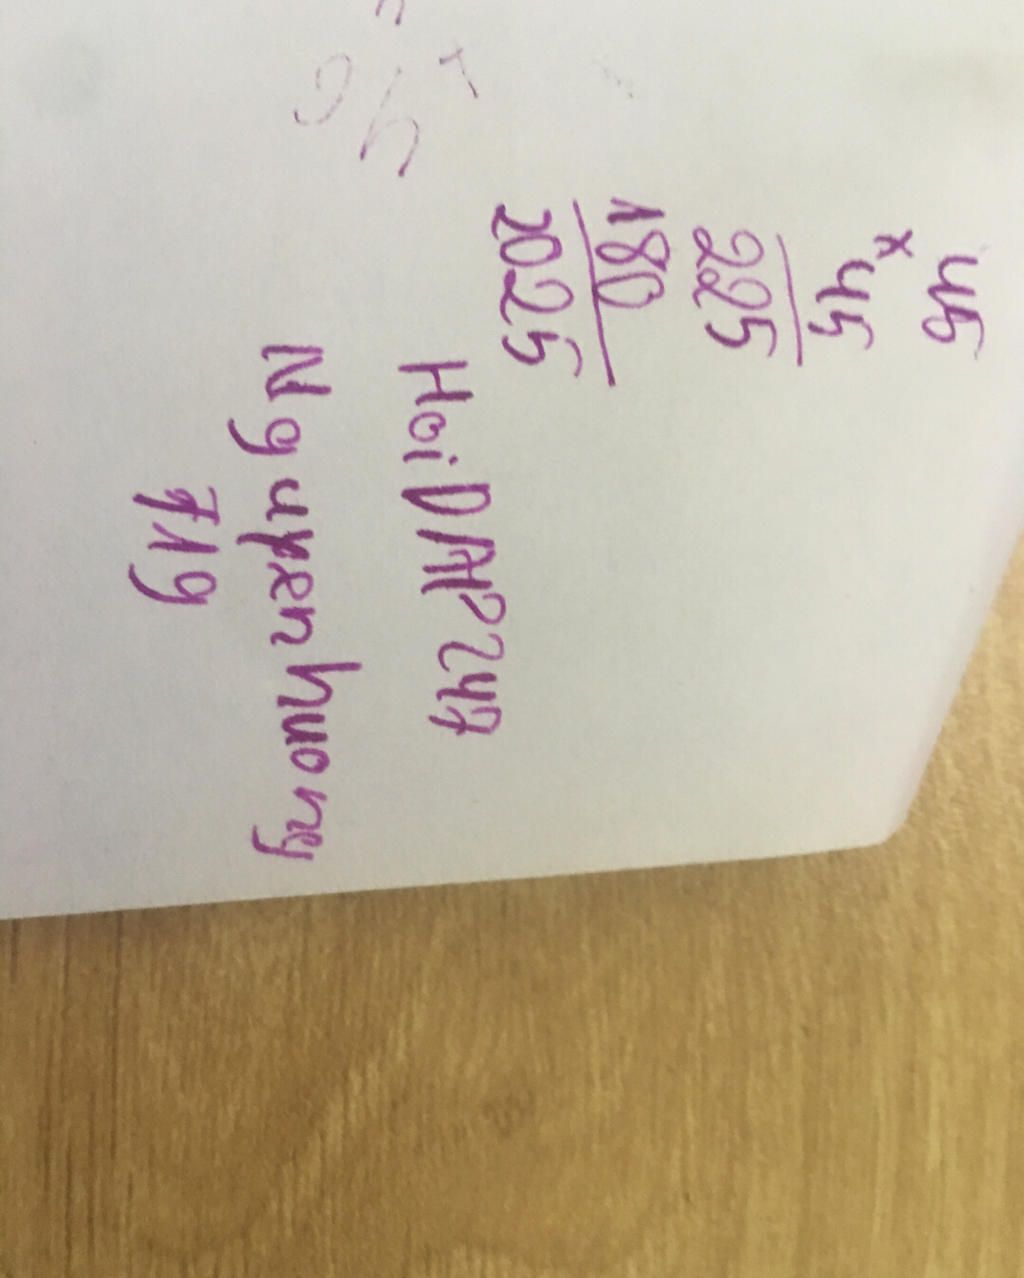 45
x
45
225
180
2025
HoiDAP247
Nguyenhuong
719